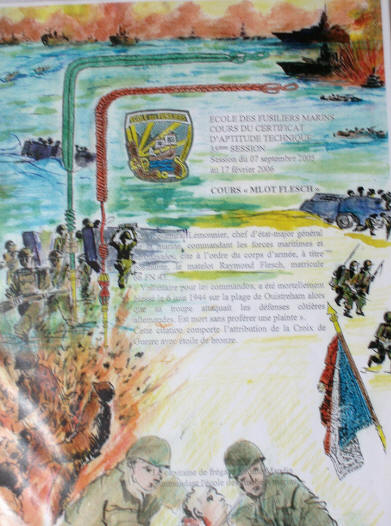 ECOLE DES FUSILIERS
ECOLE DES FUSILIERS MARINS
COURS DU CERTIFICAT
D'APTITUDE TECHNIQUE
35ème SESSION
Session du 07 septembre 2005
au 17 février 2006
COURS « MLOT FLESCH »
Lemonnier, chef d'état-major général
marine, commandant les forces maritimes et
cite à l'ordre du corps d'armée, à titre
le matelot Raymond Flesch, matricule
FN 43.
« Volontaire pour les commandos, a été mortellement
le 6 juin 1944 sur la plage de Ouistreham alors
que sa troupe attaquait les défenses côtières
allemandes. Est mort sans proférer une plainte ».
Cette citation comporte l'attribution de la Croix de
Guerre avec étoile de bronze.
capitaine de frégate
commandant l'école des fusiliers marins